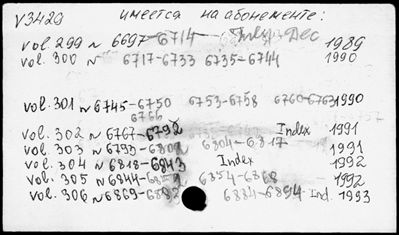 V3429 имеется на абонементе:
vol 299 N 6697-6714 July-Dec 1989
vol. 300 N 6717-6733 6735-6744 1990
vol. 301 N 6745-6750 6753-6758 6760-6763 1990
6766
vol. 302 N 6767-6792 Index 1991
vol. 303 N 6793-6802 6804-6817 1991
vol. 304 N 6818-6843 Index 1992
vol. 305 N 6844-6852 6854-6868 1992
vol. 306 N 6869-6882 6884-6894 Ind. 1993